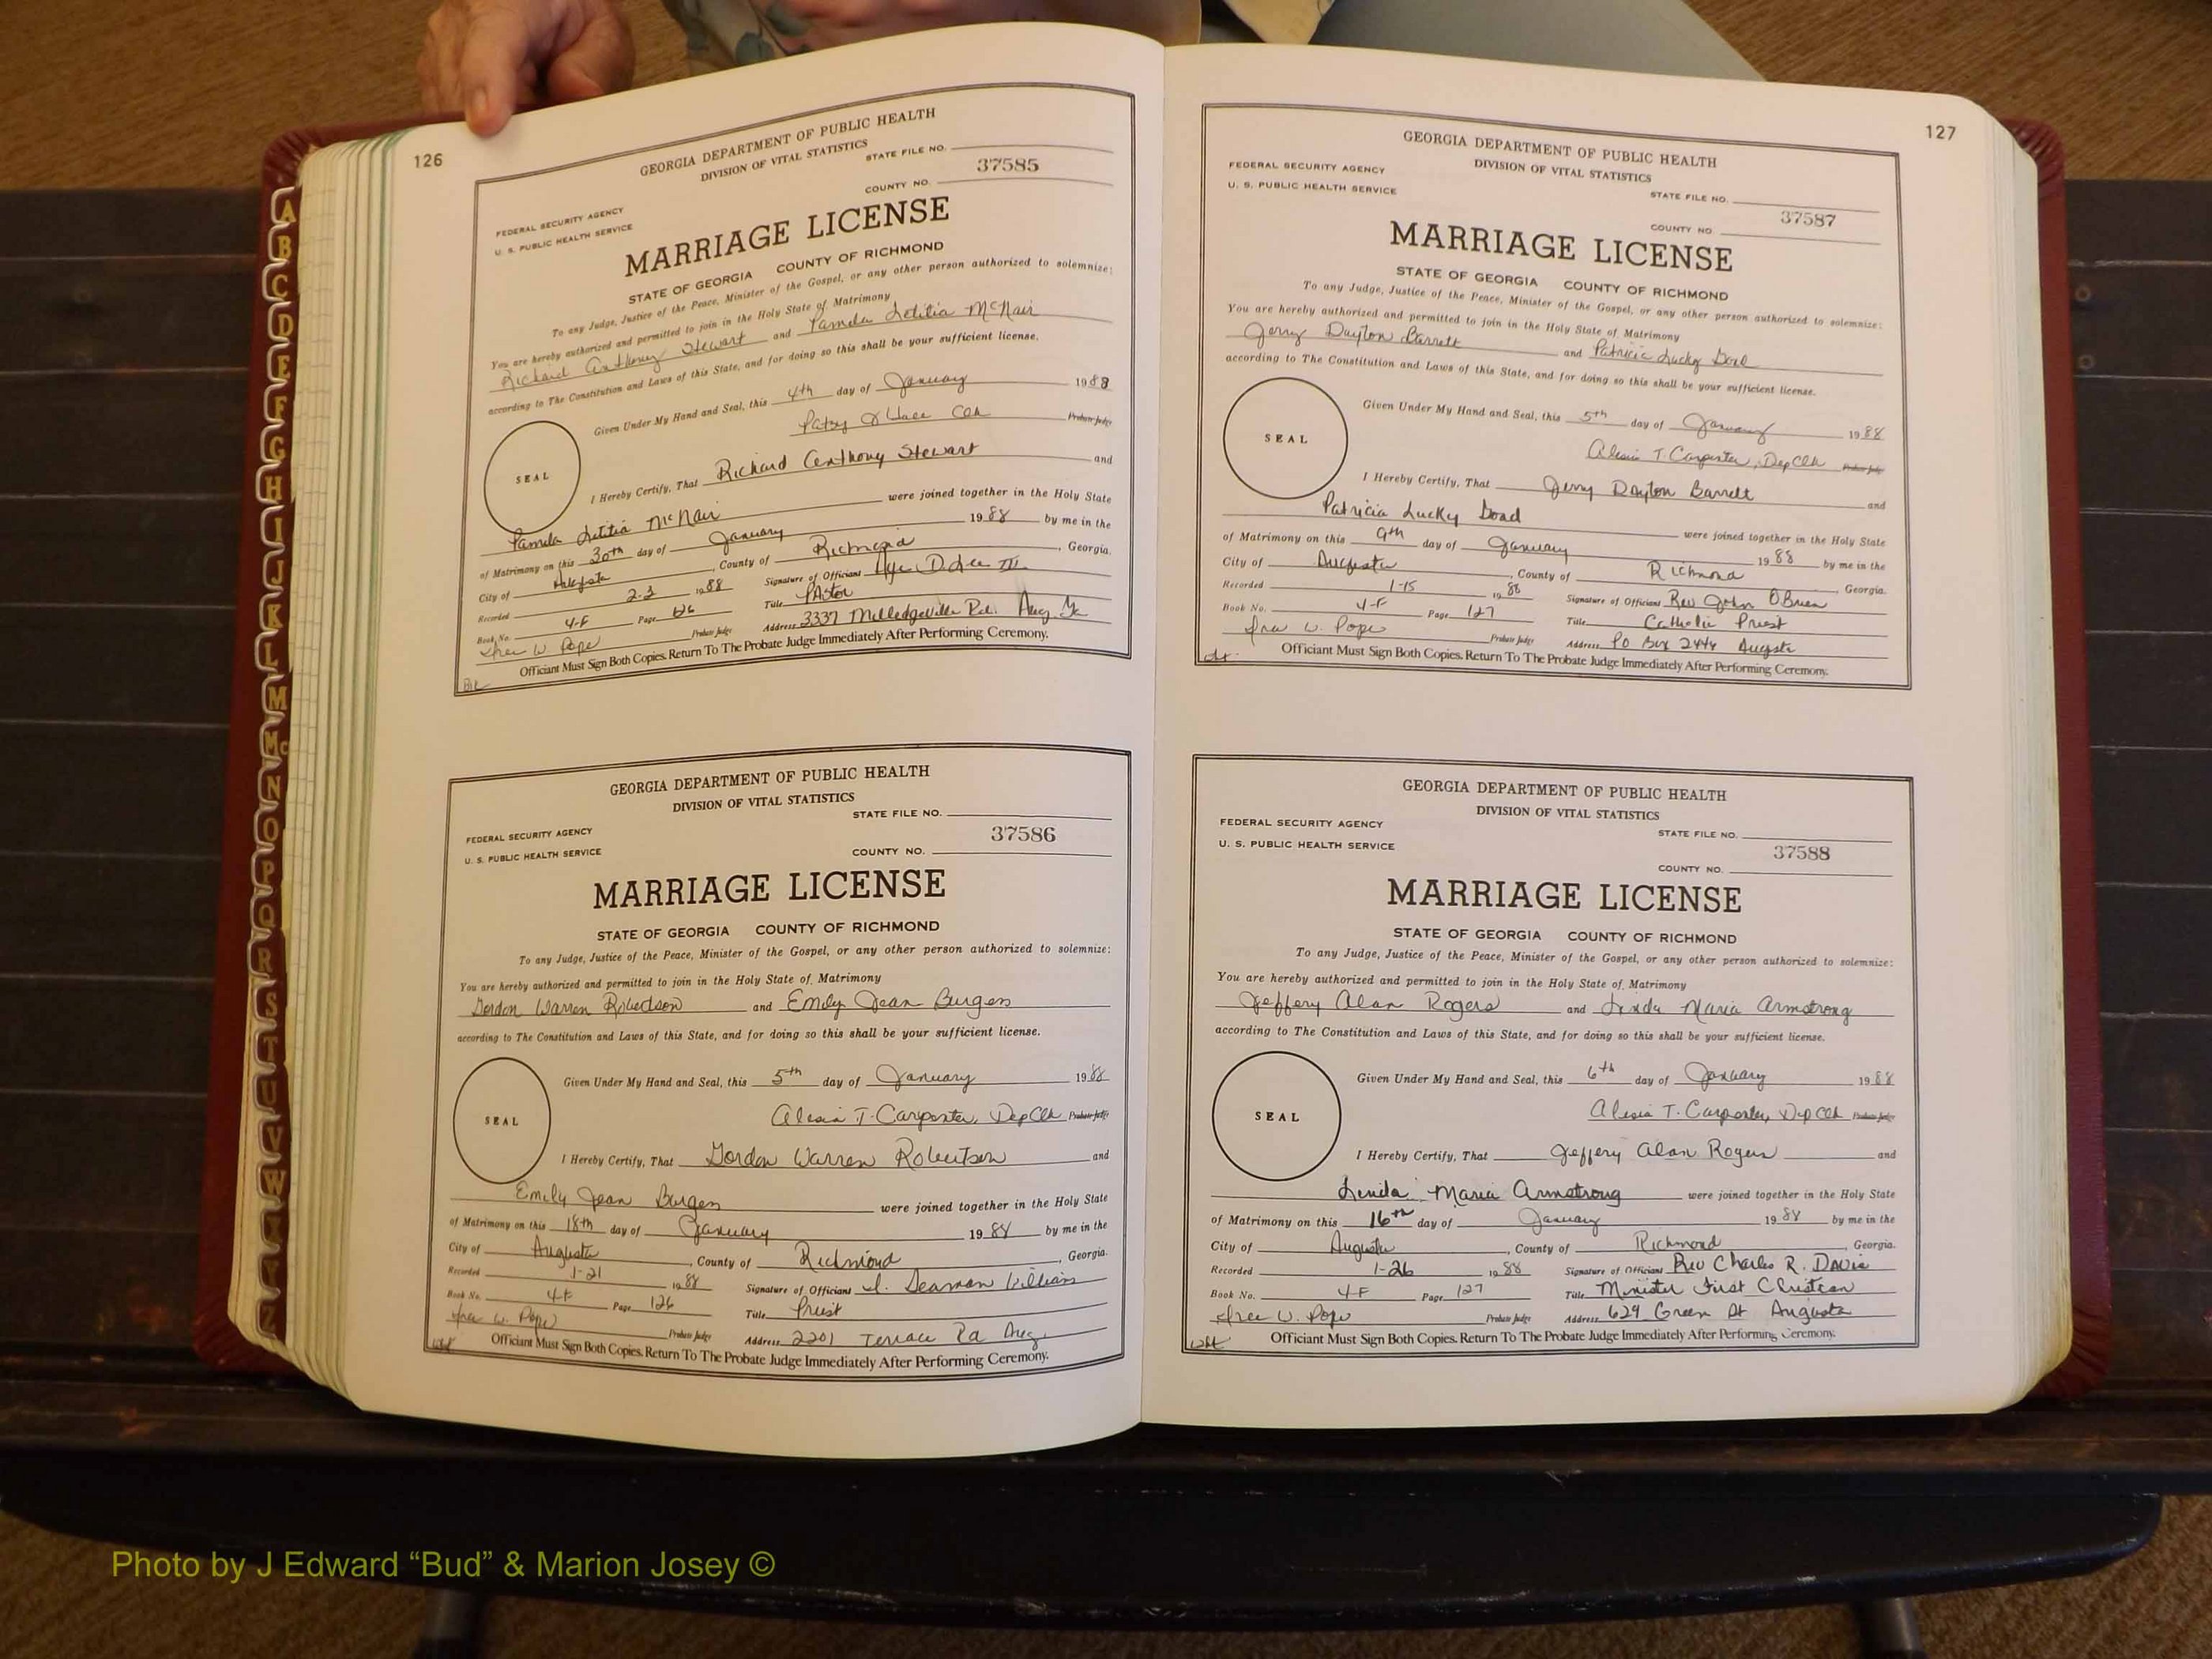 126
GEORGIA DEPARTMENT OF PUBLIC HEALTH
DIVISION OF VITAL STATISTICS
STATE FILE NO.
37585
COUNTY NO.
FEDERAL SECURITY AGENCY
U. S. PUBLIC HEALTH SERVICE
MARRIAGE LICENSE
STATE OF GEORGIA COUNTY OF RICHMOND
To any Judge, Justice of the Peace, Minister of the Gospel, or any other person authorized to solemnize:
You are hereby authorized and permitted to join in the Holy State of Matrimony
Richard Anthony Stewart and Pamela Letitia McNair
according to The Constitution and Laws of this State, and for doing so this shall be your sufficient license.
Given Under My Hand and Seal, this 4th day of January 1988
Patsy Clk Probate Judge
SEAL
I Hereby Certify, That Richard Anthony Stewart and
Pamela Letitia McNair were joined together in the Holy State
of Matrimony on this 30th day of January 1988 by me in the
City of Augusta, County of Richmond, Georgia.
Recorded 2-3 1988 Signature of Officiant D. Lee III
Book No. 4-F Page 126 Title Pastor
W Pope Probate Judge Address 3337 Milledgeville Rd. Aug. Ga
Officiant Must Sign Both Copies. Return To The Probate Judge Immediately After Performing Ceremony.
GEORGIA DEPARTMENT OF PUBLIC HEALTH
DIVISION OF VITAL STATISTICS
STATE FILE NO.
37586
FEDERAL SECURITY AGENCY
U. S. PUBLIC HEALTH SERVICE
COUNTY NO.
MARRIAGE LICENSE
STATE OF GEORGIA COUNTY OF RICHMOND
To any Judge, Justice of the Peace, Minister of the Gospel, or any other person authorized to solemnize:
You are hereby authorized and permitted to join in the Holy State of Matrimony
Gordon Warren Robertson and Emily Jean Burgess
according to The Constitution and Laws of this State, and for doing so this shall be your sufficient license.
Given Under My Hand and Seal, this 5th day of January 1988
Alesia T. Carpenter, Dep Clk Probate Judge
SEAL
I Hereby Certify, That Gordon Warren Robertson and
Emily Jean Burgess were joined together in the Holy State
of Matrimony on this 18th day of January 1988 by me in the
City of Augusta, County of Richmond, Georgia.
Recorded 1-21 1988 Signature of Officiant Seaman Williams
Book No. 4-F Page 126 Title Priest
W. Pope Probate Judge Address 2201 Terrace Rd Aug
Officiant Must Sign Both Copies. Return To The Probate Judge Immediately After Performing Ceremony.
127
GEORGIA DEPARTMENT OF PUBLIC HEALTH
DIVISION OF VITAL STATISTICS
FEDERAL SECURITY AGENCY
U. S. PUBLIC HEALTH SERVICE
STATE FILE NO.
37587
COUNTY NO.
MARRIAGE LICENSE
STATE OF GEORGIA COUNTY OF RICHMOND
To any Judge, Justice of the Peace, Minister of the Gospel, or any other person authorized to solemnize:
You are hereby authorized and permitted to join in the Holy State of Matrimony
Jerry Dayton Barrett and Patricia Lucky Goad
according to The Constitution and Laws of this State, and for doing so this shall be your sufficient license.
Given Under My Hand and Seal, this 5th day of January 1988
Alesia T. Carpenter, Dep Clk Probate Judge
SEAL
I Hereby Certify, That Jerry Dayton Barrett and
Patricia Lucky Goad were joined together in the Holy State
of Matrimony on this 9th day of January 1988 by me in the
City of Augusta, County of Richmond, Georgia.
Recorded 1-15 1988 Signature of Officiant Rev John O'Brien
Book No. 4-F Page 127 Title Catholic Priest
W. Pope Probate Judge Address PO Box 2446 Augusta
Officiant Must Sign Both Copies. Return To The Probate Judge Immediately After Performing Ceremony.
GEORGIA DEPARTMENT OF PUBLIC HEALTH
DIVISION OF VITAL STATISTICS
FEDERAL SECURITY AGENCY
U. S. PUBLIC HEALTH SERVICE
STATE FILE NO.
37588
COUNTY NO.
MARRIAGE LICENSE
STATE OF GEORGIA COUNTY OF RICHMOND
To any Judge, Justice of the Peace, Minister of the Gospel, or any other person authorized to solemnize:
You are hereby authorized and permitted to join in the Holy State of Matrimony
Jeffery Alan Rogers and Linda Maria Armstrong
according to The Constitution and Laws of this State, and for doing so this shall be your sufficient license.
Given Under My Hand and Seal, this 6th day of January 1988
Alesia T. Carpenter, Dep Clk Probate Judge
SEAL
I Hereby Certify, That Jeffery Alan Rogers and
Linda Maria Armstrong were joined together in the Holy State
of Matrimony on this 16th day of January 1988 by me in the
City of Augusta, County of Richmond, Georgia.
Recorded 1-26 1988 Signature of Officiant Rev Charles R. Davis
Book No. 4-F Page 127 Title Minister First Christian
W. Pope Probate Judge Address 629 Green St Augusta
Officiant Must Sign Both Copies. Return To The Probate Judge Immediately After Performing Ceremony.
A
B
C
D
E
F
G
H
I
J
K
L
M
Mc
N
O
P
Q
R
S
T
U
V
W
Z
Photo by J Edward “Bud” & Marion Josey ©